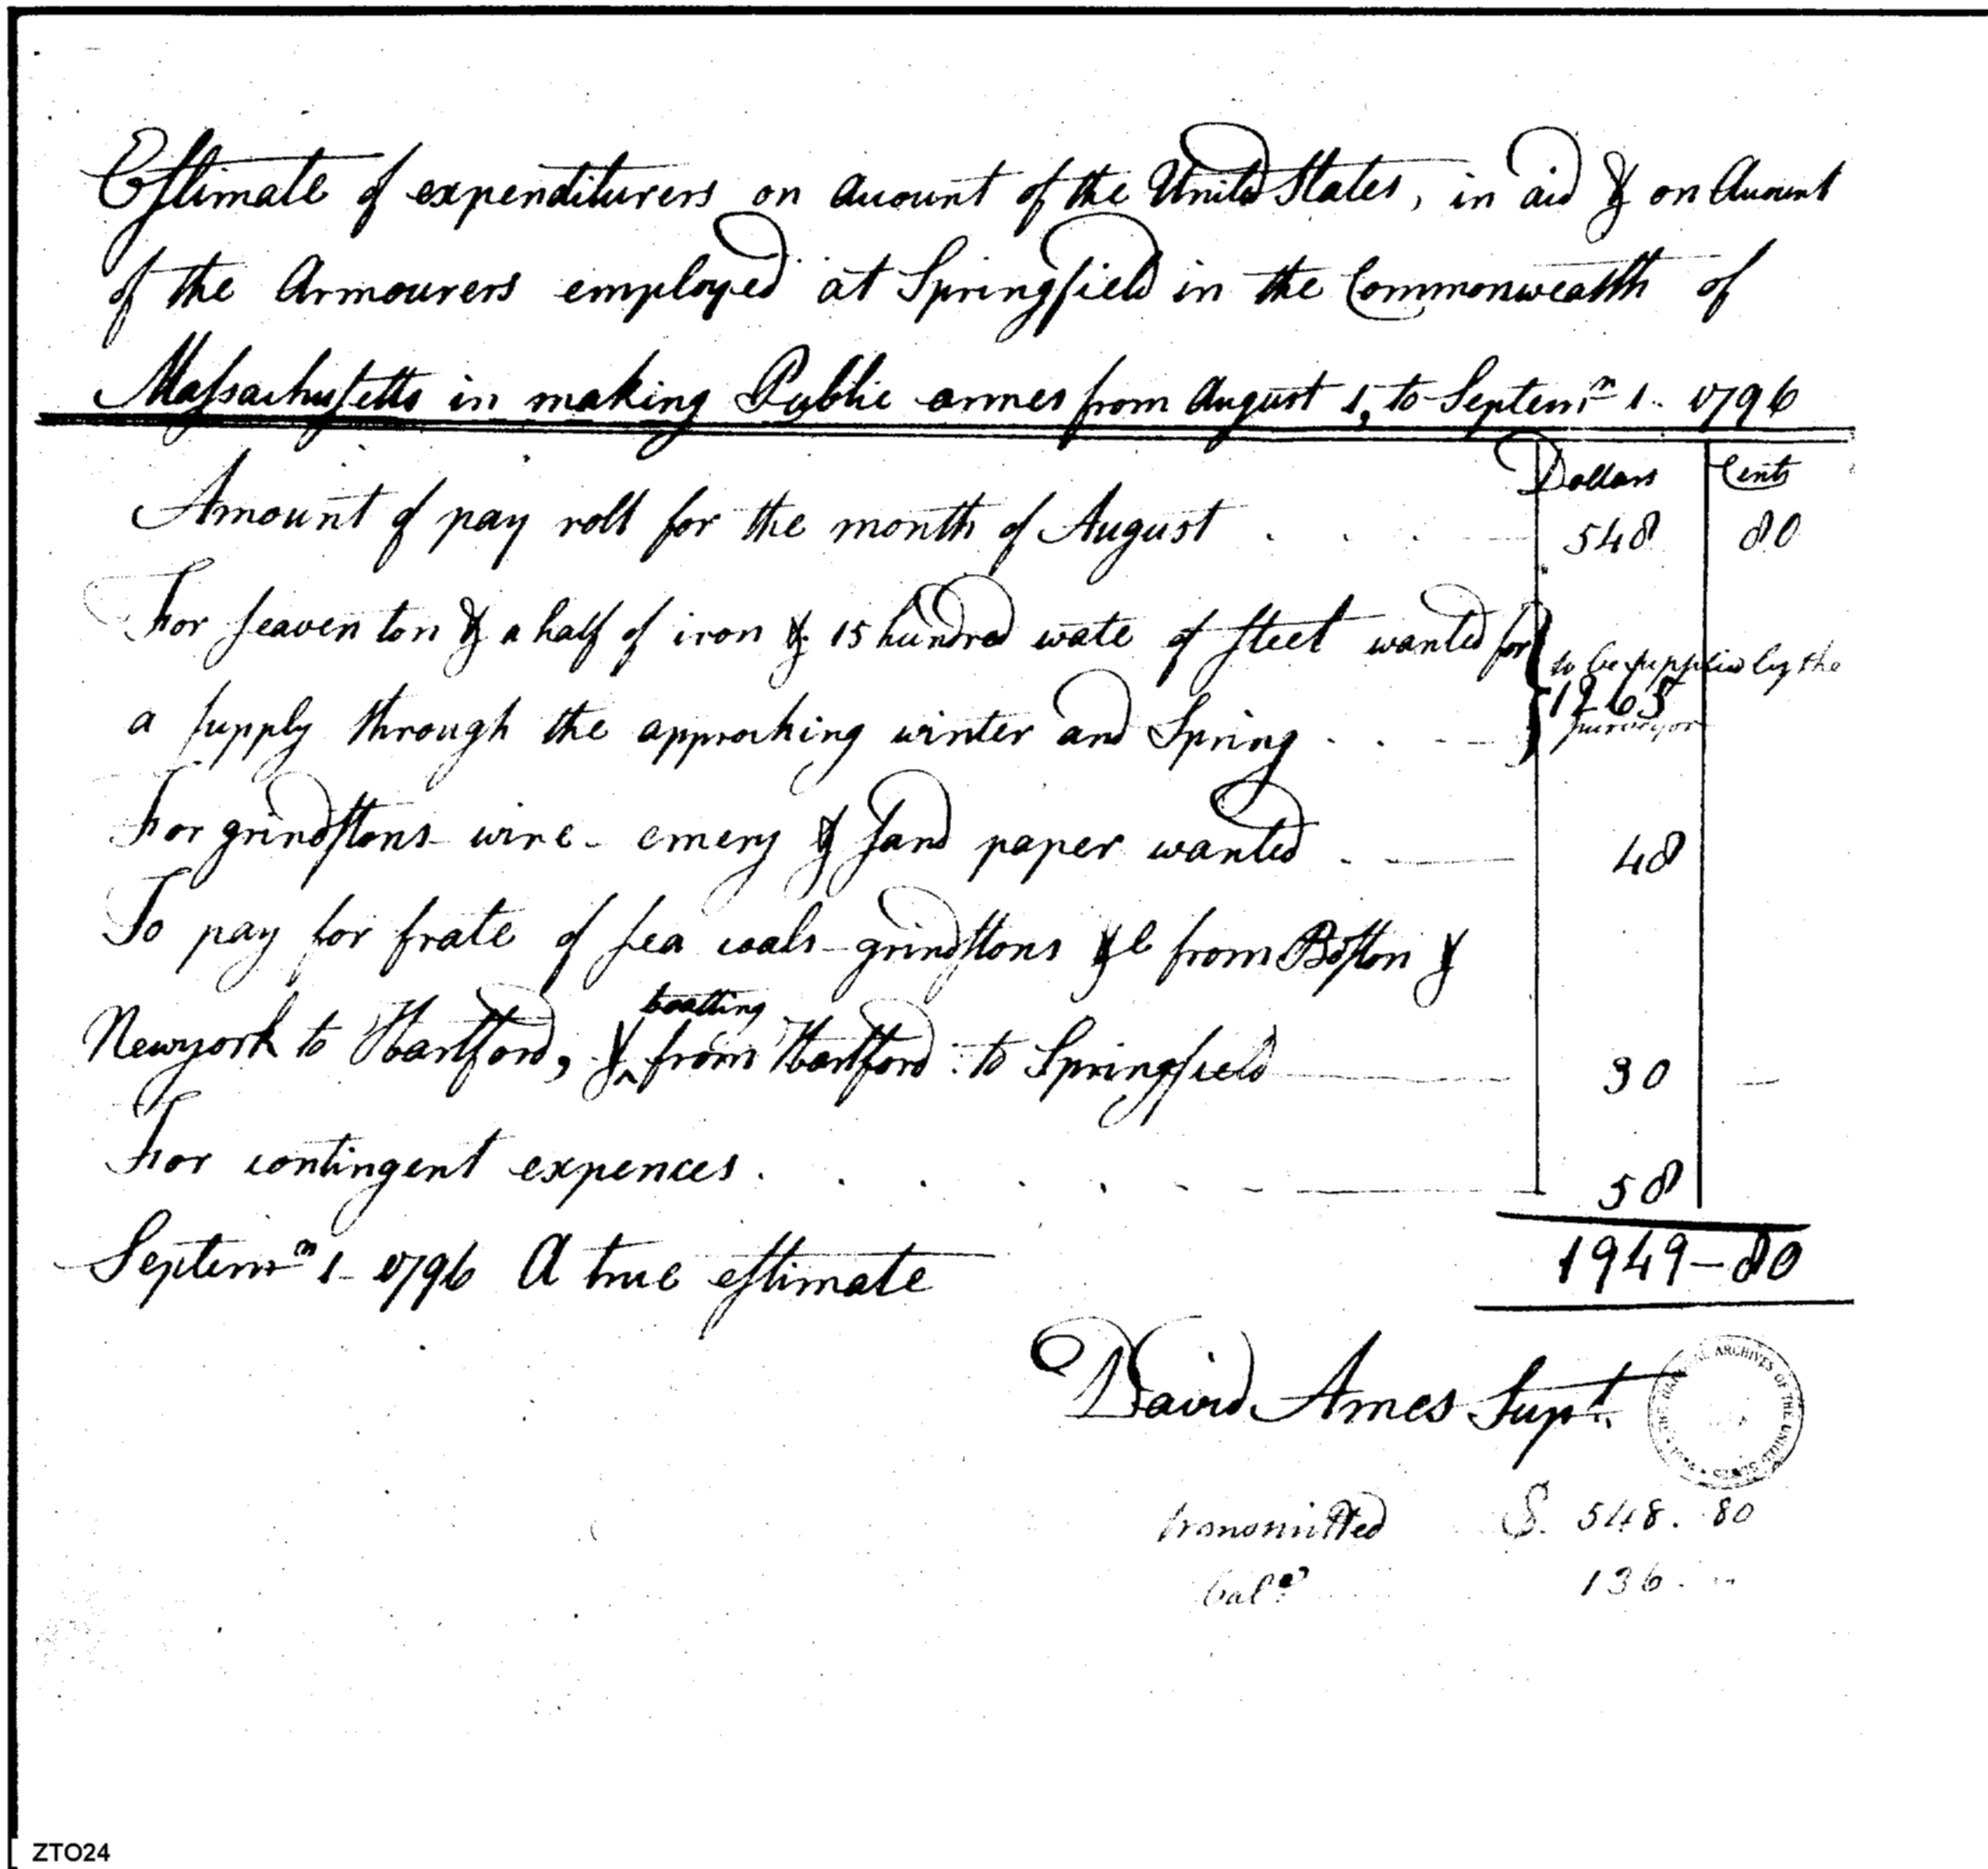 Estimate of expenditurers on account of the United States, in aid & on Account
of the Armourers employed at Springfield in the Commonwealth of
Massachusetts in making Public armes from August 1, to Septemr 1. 1796
Dollars Cents
Amount of pay roll for the month of August . . . 548 80
For seaven ton & a half of iron & 15 hundred wate of steel wanted for
to be supplied by the
1265
purveyor
a supply through the approching winter and Spring . . - -
For grindstons wire - emery & sand paper wanted . - — 48
To pay for frate of sea coals - grindstons &c from Boston &
boatting
Newyork to Hartford, & from Hartford to Springfield — 30 —
For contingent expences . . . . . - - — 58
Septemr 1 - 1796 A true estimate
1949 — 80
David Ames Supt.
THE NATIONAL ARCHIVES OF THE UNITED STATES
transmitted $. 548. 80
Bale. 136. "
ZTO24